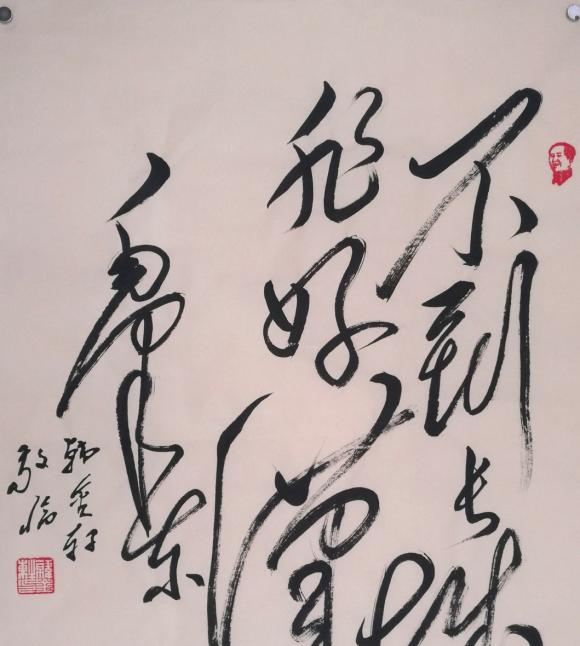 不到长城
非好汉
毛泽东
敬临